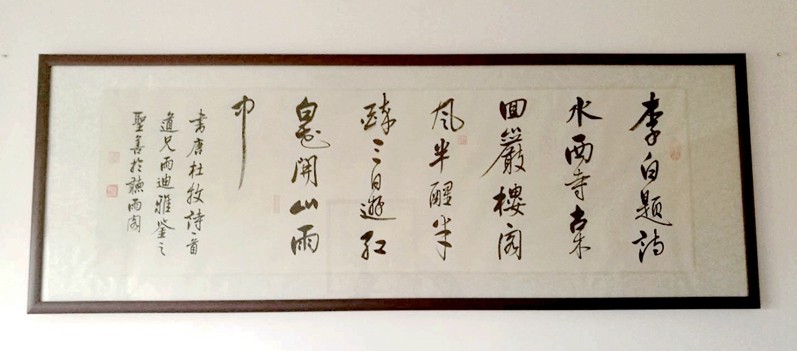 李白題詩
水西寺古木
回巖樓閣
風半醒半
醉三日遊紅
白花開山雨
中
書唐杜牧詩一首
道兄雨迪雅鑒之
聖善於聽雨閣